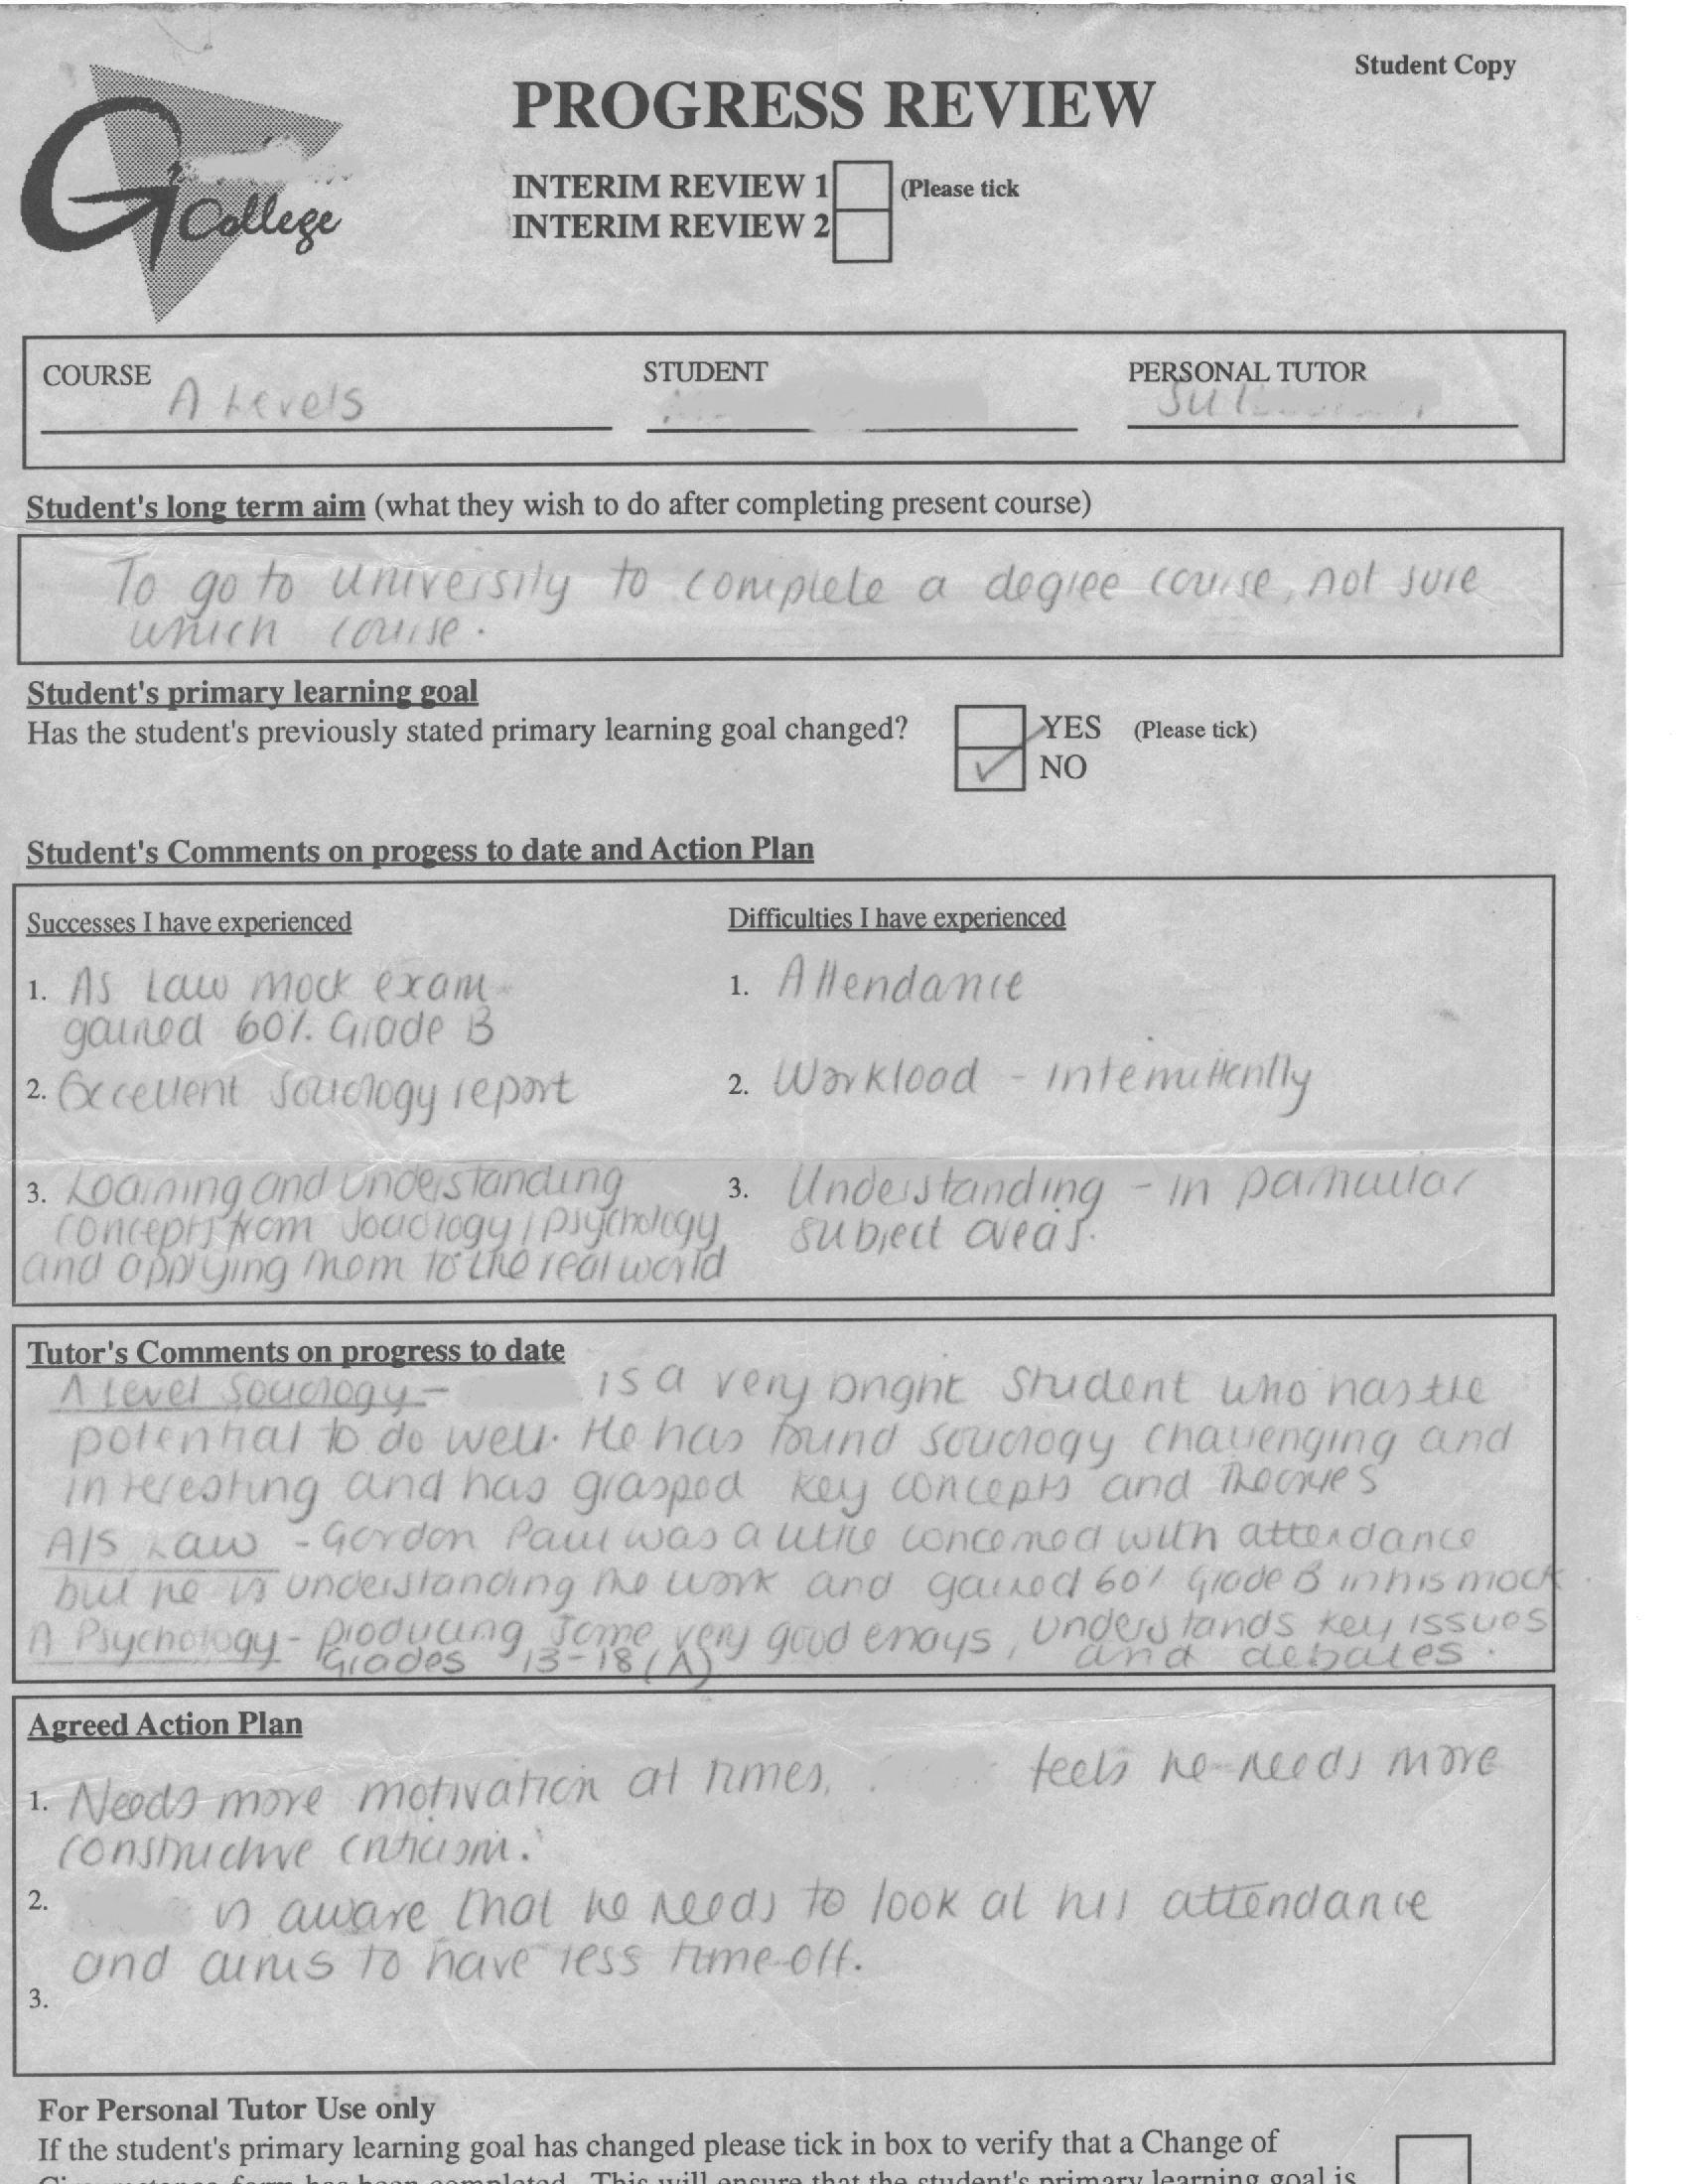 Student Copy
G College
PROGRESS REVIEW
INTERIM REVIEW 1 (Please tick
INTERIM REVIEW 2
COURSE STUDENT PERSONAL TUTOR
A Levels
Student's long term aim (what they wish to do after completing present course)
To go to university to complete a degree course, not sure
which course.
Student's primary learning goal
Has the student's previously stated primary learning goal changed? YES (Please tick)
✓ NO
Student's Comments on progess to date and Action Plan
Successes I have experienced
1. AS Law mock exam
gained 60% Grade B
2. Excellent Sociology report
3. Learning and understanding
concepts from Sociology / psychology
and applying them to the real world
Difficulties I have experienced
1. Attendance
2. Workload - intermittently
3. Understanding - in particular
subject areas.
Tutor's Comments on progress to date
A level Sociology - is a very bright student who has the
potential to do well. He has found sociology challenging and
interesting and has grasped key concepts and theories
A/S Law - Gordon Paul was a little concerned with attendance
but he is understanding the work and gained 60% Grade B in his mock
A Psychology - producing some very good essays, understands key issues
Grades 13-18 (A) and debates.
Agreed Action Plan
1. Needs more motivation at times. feels he needs more
constructive criticism.
2. is aware that he needs to look at his attendance
and aims to have less time off.
3.
For Personal Tutor Use only
If the student's primary learning goal has changed please tick in box to verify that a Change of
Circumstance form has been completed. This will ensure that the student's primary learning goal is